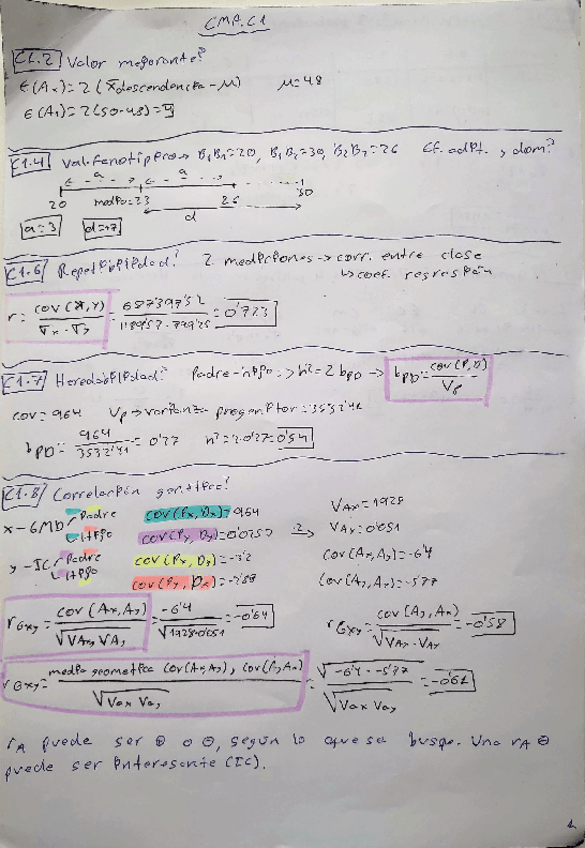 CMA.C1
C1.2 Valor mejorante?
E(Ax)=2(x̄descendencia-M) M=48
E(A1)=2(50-48)=4
C1.4 Val.fenotípico→ B1B1=20, B1B2=30, B2B2=26 Ef. adit., dom?
a a
20 medio=23 26 30
d
a=3 d=+7
C1.6 Repetibilidad? 2 mediciones→corr. entre clase
↳coef. regresión
r= cov(X,Y) / σx·σy = = 0'723
C1.7 Heredabilidad? Padre-hijo:→h²=2bPD → bPD= cov(P,D) / Vp
cov=964 Vp→varianza progenitor=3532'41
bPD= 964 / 3532'41 = 0'27 h²=2·0'27=0'54
C1.8 Correlación genética?
x-GMD Padre cov(Px,Dx)=964 VAx=1928
Hijo cov(Py,Dy)=0'0257 ·2→ VAy=0'051
y-IC Padre cov(Px,Dy)=-3'2 cov(Ax,Ay)=-6'4
Hijo cov(Py,Dx)= cov(Ay,Ax)=-5'77
rGxy= cov(Ax,Ay) / √VAx VAy = -6'4 / √1928·0'051 = -0'64 rGxy= cov(Ay,Ax) / √VAx·VAy = -0'58
rGxy= media geométrica cov(Ax,Ay), cov(Ay,Ax) / √Vax Vay = √-6'4·-5'77 / √Vax Vay = -0'61
rA puede ser ⊕ o ⊖, según lo que se busque. Una rA ⊖
puede ser interesante (IC).